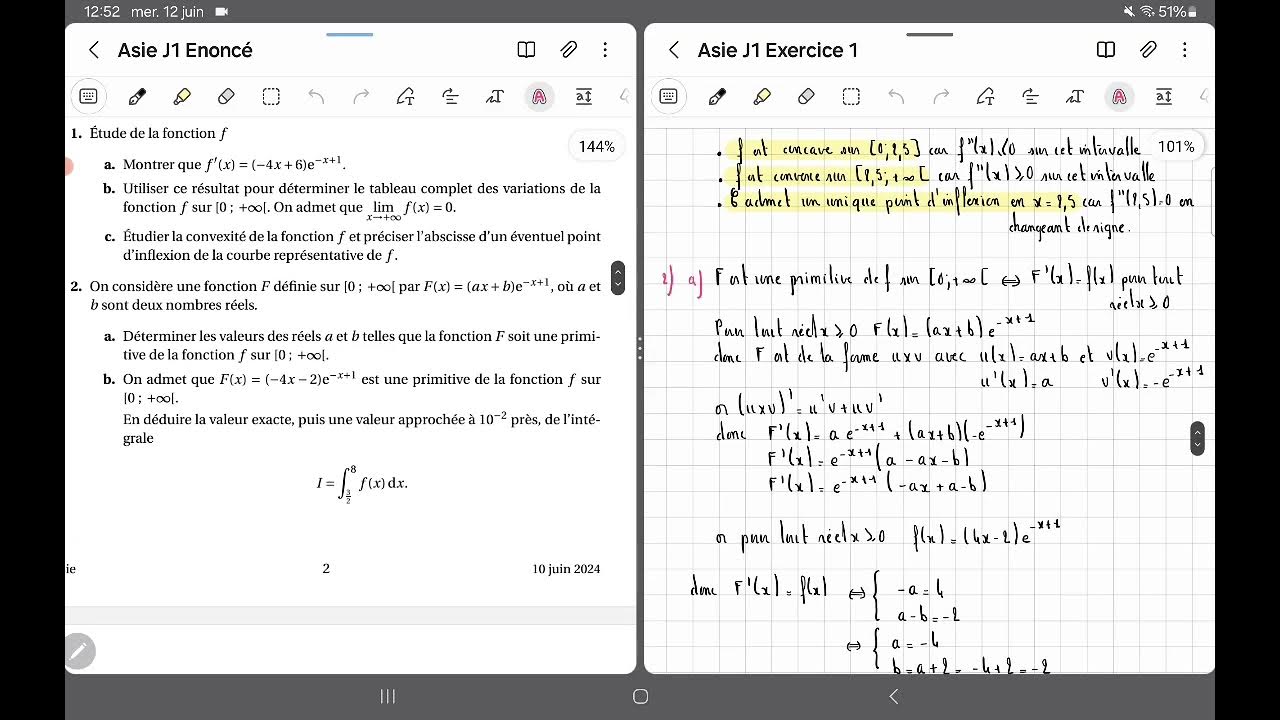 12:52 mer. 12 juin
51%
Asie J1 Enoncé
144%
1. Étude de la fonction f
a. Montrer que f′(x) = (−4x + 6)e^{−x+1}.
b. Utiliser ce résultat pour déterminer le tableau complet des variations de la
fonction f sur [0 ; +∞[. On admet que lim_{x→+∞} f(x) = 0.
c. Étudier la convexité de la fonction f et préciser l'abscisse d'un éventuel point
d'inflexion de la courbe représentative de f.
2. On considère une fonction F définie sur [0 ; +∞[ par F(x) = (ax + b)e^{−x+1}, où a et
b sont deux nombres réels.
a. Déterminer les valeurs des réels a et b telles que la fonction F soit une primi-
tive de la fonction f sur [0 ; +∞[.
b. On admet que F(x) = (−4x − 2)e^{−x+1} est une primitive de la fonction f sur
[0 ; +∞[.
En déduire la valeur exacte, puis une valeur approchée à 10^{−2} près, de l'inté-
grale
I = ∫_{3/2}^{8} f(x) dx.
ie
2
10 juin 2024
Asie J1 Exercice 1
101%
• f est concave sur [0;2,5] car f''(x)⩽0 sur cet intervalle
• f est convexe sur [2,5;+∞[ car f''(x)⩾0 sur cet intervalle
• C admet un unique point d'inflexion en x=2,5 car f''(2,5)=0 en
changeant de signe.
2) a) F est une primitive de f sur [0;+∞[ ⇔ F'(x)=f(x) pour tout
réel x⩾0
Pour tout réel x⩾0 F(x)=(ax+b)e^{-x+1}
donc F est de la forme uxv avec u(x)=ax+b et v(x)=e^{-x+1}
u'(x)=a v'(x)=-e^{-x+1}
or (uxv)'=u'v+uv'
donc F'(x)=a e^{-x+1}+(ax+b)(-e^{-x+1})
F'(x)=e^{-x+1}(a-ax-b)
F'(x)=e^{-x+1}(-ax+a-b)
or pour tout réel x⩾0 f(x)=(4x-2)e^{-x+1}
donc F'(x)=f(x) ⇔ { -a=4
a-b=-2
⇔ { a=-4
b=a+2=-4+2=-2